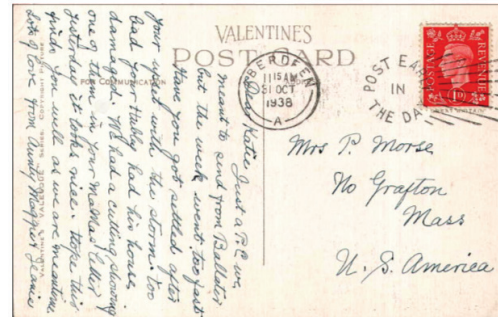 VALENTINES
POST CARD
FOR COMMUNICATION
ABERDEEN
11 15 AM
31 OCT
1938
A
POST EARLY
IN
THE DAY
POSTAGE
REVENUE
1D
Dear Katie Just a P.C. we
meant to send from Ballater
but the week went too fast
Have you got settled after
your upset with the storm. Too
bad your Hubby had his house
damaged. We had a cutting showing
one of them in your Mothers letter
yesterday it looks nice. Hope this
finds you well as we are meantime
Lots of love from Aunty Maggie & Jeanie
Mrs P. Morse
No Grafton
Mass
U.S. America